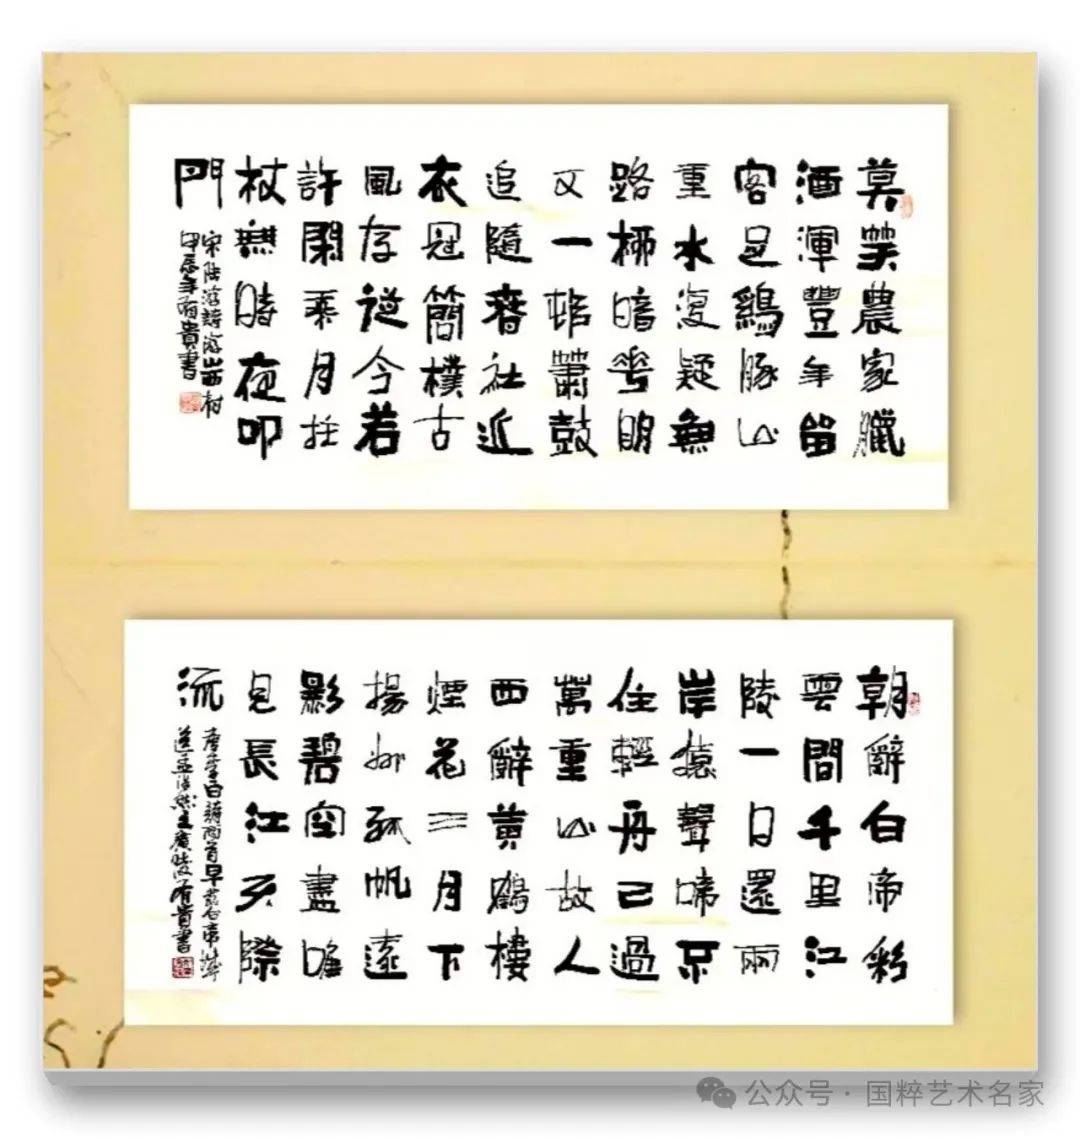 莫笑農家臘
酒渾豐年留
客足鷄豚山
重水復疑無
路柳暗花明
又一邨蕭鼓
追隨春社近
衣冠簡樸古
風存從今若
許閑乘月拄
杖無時夜叩
門
宋陸游詩游山西村
甲辰年有貴書
朝辭白帝彩
雲間千里江
陵一日還兩
岸猿聲啼不
住輕舟已過
萬重山故人
西辭黃鶴樓
煙花三月下
揚州孤帆遠
影碧空盡唯
見長江天際
流
唐李白詩兩首早發白帝城
送孟浩然之廣陵有貴書
公众号·国粹艺术名家